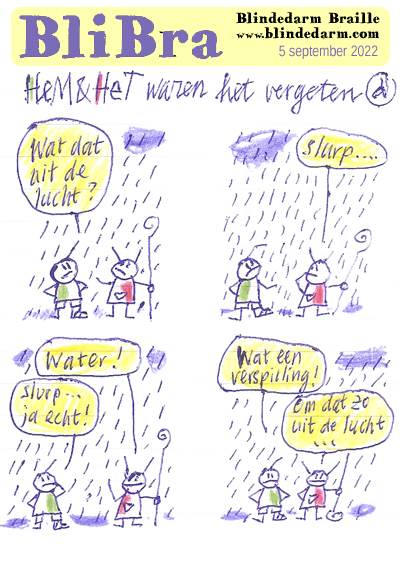 BliBra
Blindedarm Braille
www.blindedarm.com
5 september 2022
HeM & HeT waren het vergeten
Wat dat
uit de
lucht?
Slurp....
Water!
Slurp...
ja echt!
Wat een
verspilling!
Em dat zo
uit de lucht
...